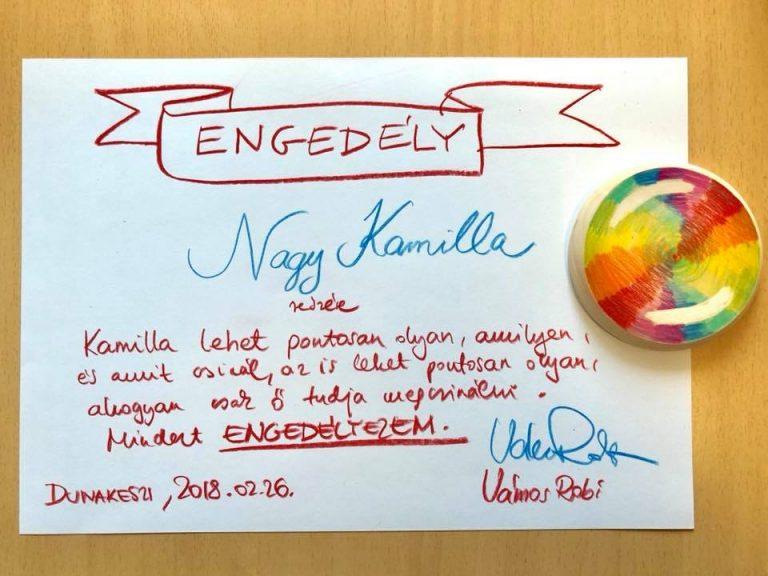 ENGEDÉLY
Nagy Kamilla
részére
Kamilla lehet pontosan olyan, amilyen,
és amit csinál, az is lehet pontosan olyan,
ahogyan csak ő tudja megcsinálni.
Mindezt ENGEDÉLYEZEM.
DUNAKESZI, 2018.02.26.
Vámos Robi